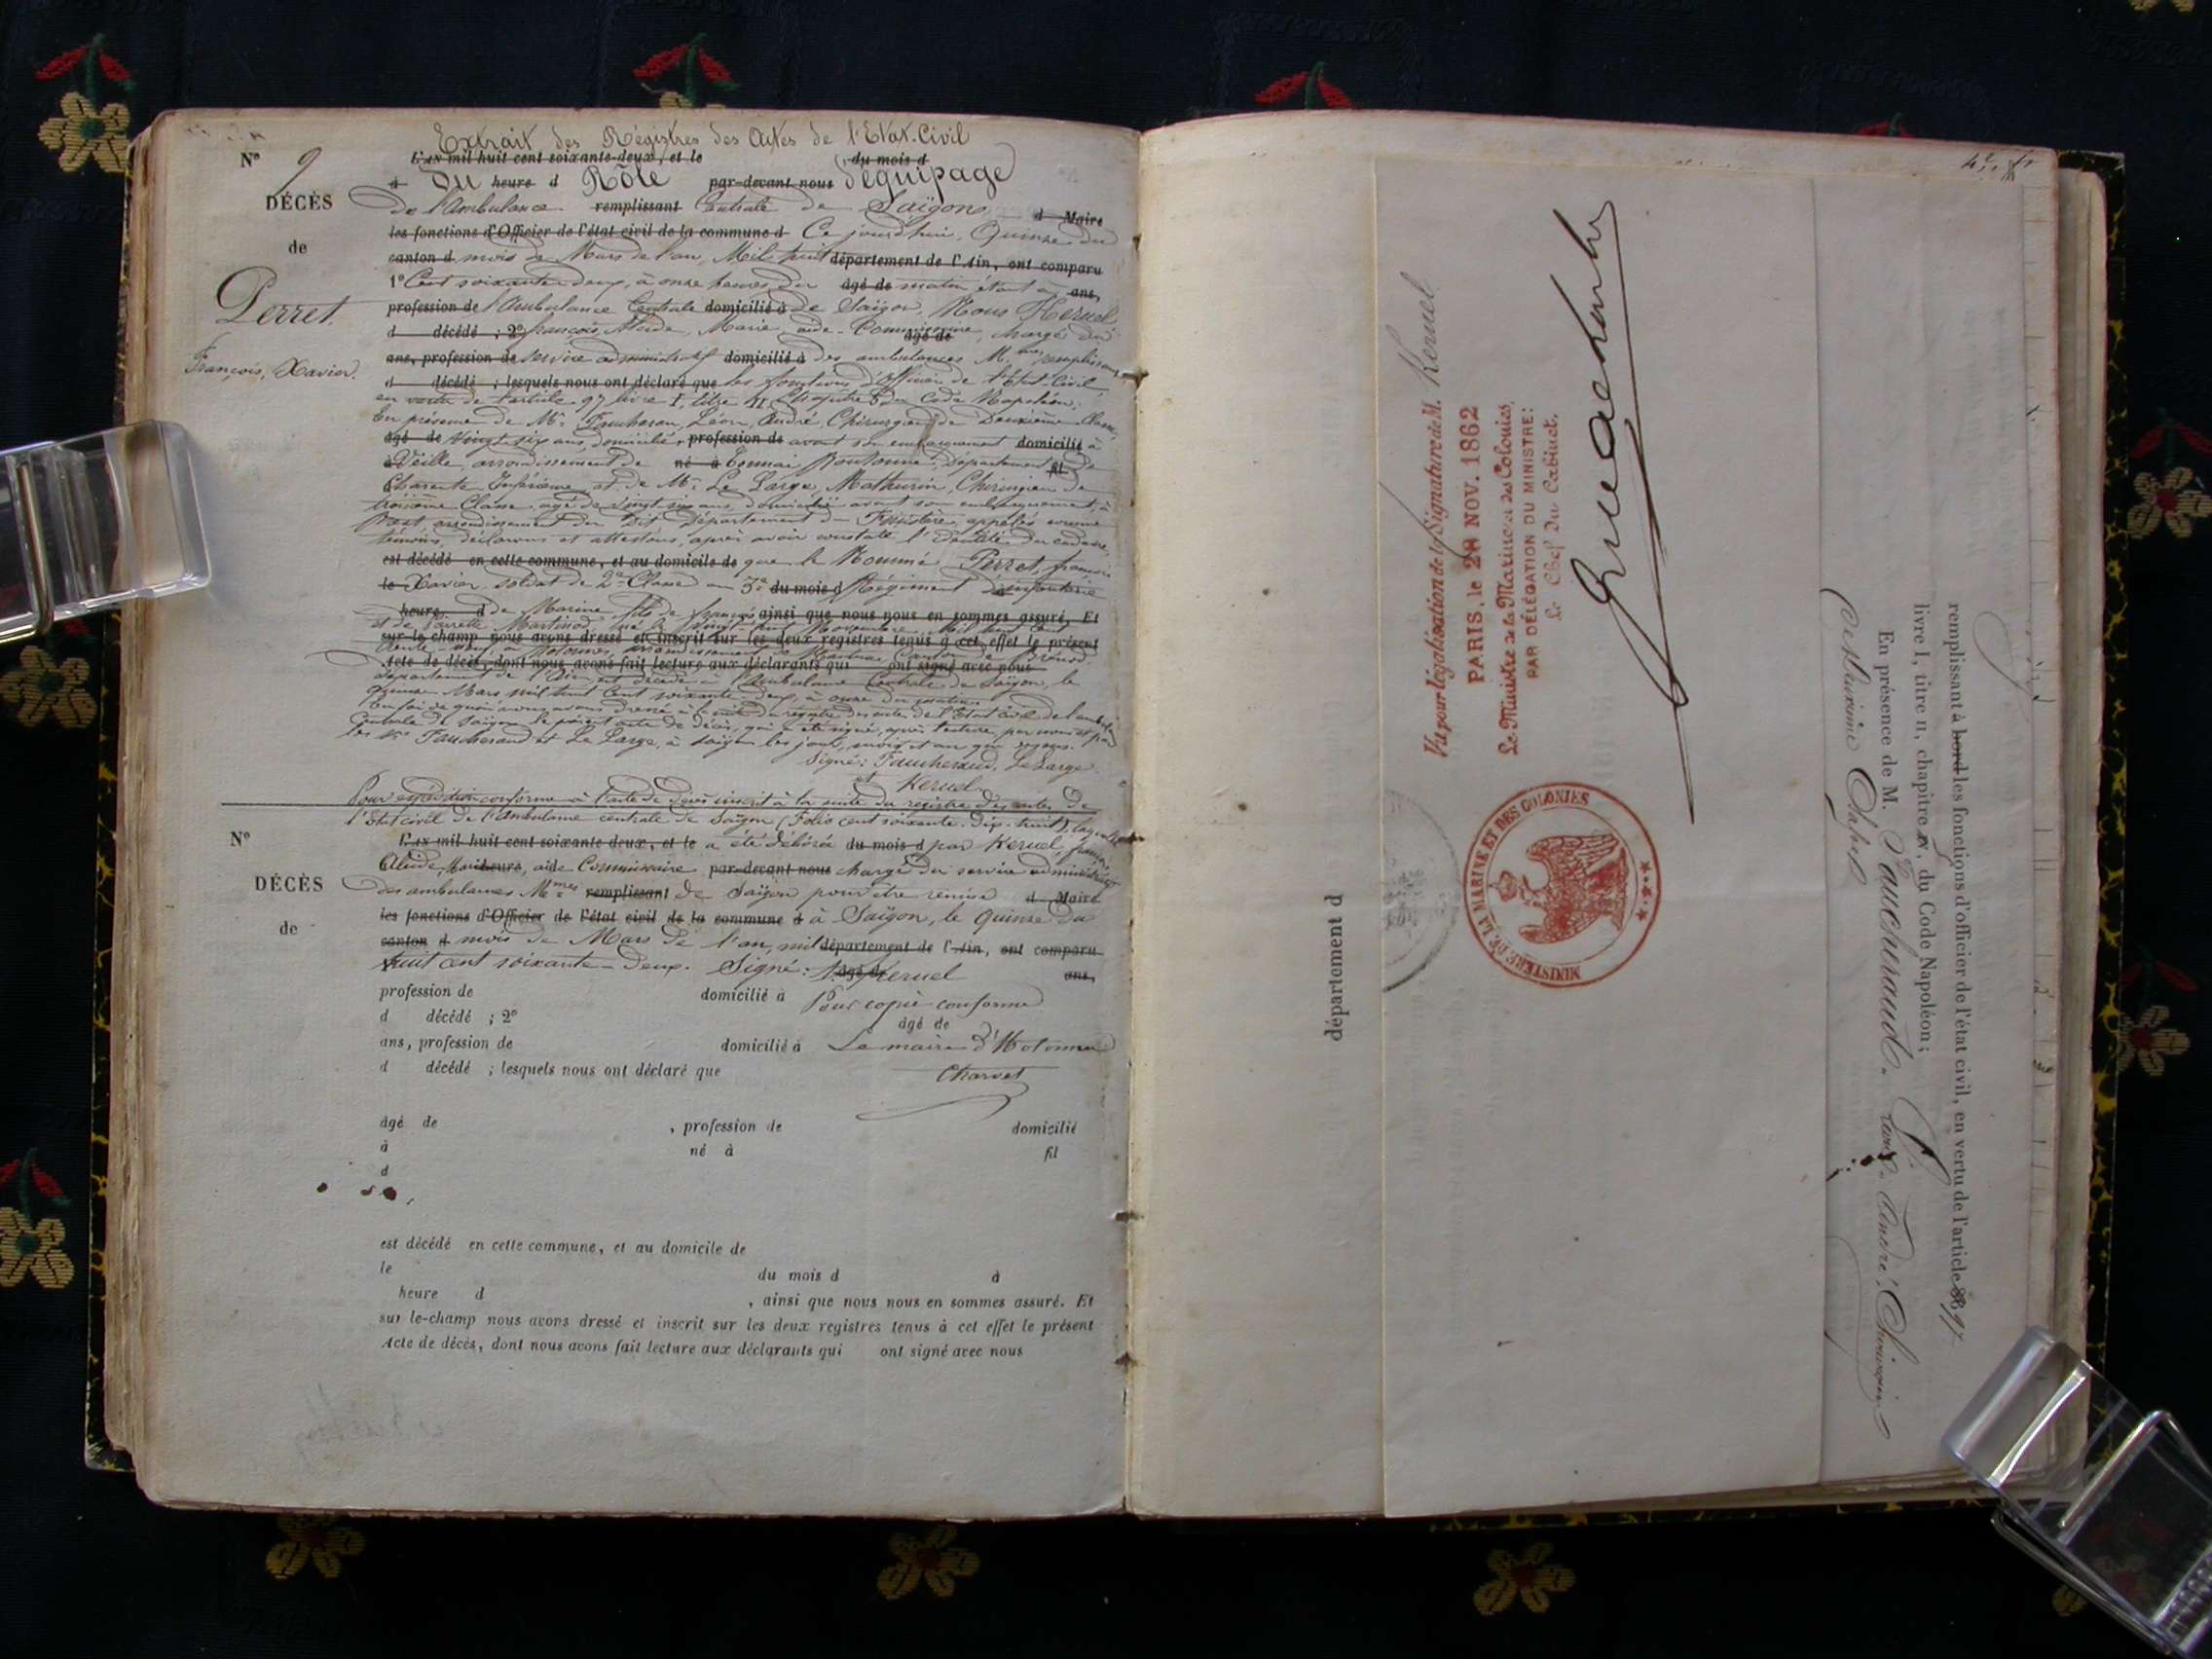 Extrait des Régistres des Actes de l'Etat-Civil
N° 9
L'an mil huit cent soixante-deux, et le du mois d
à Du heure d Rôle par-devant nous d'équipage
DÉCÈS
de l'Ambulance remplissant Centrale de Saïgon d Maire
les fonctions d'Officier de l'état civil de la commune d Ce jourd'hui, Quinze du
de
canton d mois de Mars de l'an, Mil huit département de l'Ain, ont comparu
1° Cent soixante deux, à onze heures du âgé de matin étant à ans,
Perret
profession de l'Ambulance Centrale domicilié à de Saïgon, Nous Keruel
d décédé ; 2° françois, Alcide, Marie, aide-Commissaire âgé de , chargé du
François, Xavier.
ans, profession de Service administratif domicilié à des ambulances M.mes remplissant
d décédé ; lesquels nous ont déclaré que les fonctions d'Officier de l'Etat-Civil,
en vertu de l'article 97 livre I, titre II, Chapitre 5 du Code Napoléon;
En présence de Mr Faucheraud, Léon, André, Chirurgien de Deuxième Classe,
âgé de Vingt six ans, domicilié, profession de avant son embarquement domicilié à
à Veille, arrondissement de né à Tonnai Boutonne, Département fil de
Charente Inférieure, et de Mr Le Large, Mathurin, Chirurgien de
troisième Classe, agé de vingt six ans, domicilié avant son embarquement, à
Brest, arrondissement du Dit Département d Finistère, appelés comme
témoins, déclarons et attestons, après avoir constaté l'identité du cadavre,
est décédé en cette commune, et au domicile de que le Nommé Perret, françois
le Xavier, soldat de 2e Classe au 3e du mois d Régiment d'infanterie
heure d de Marine, fils de françois ainsi que nous nous en sommes assuré. Et
et de Pierrette Martinod, né le vingt Novembre Mil huit cent
sur-le champ nous avons dressé et inscrit sur les deux registres tenus à cet effet le présent
trente-neuf, à Hotonnes, arrondissement de Nantua, Canton de Brénod
Acte de décès, dont nous avons fait lecture aux déclarants qui ont signé avec nous
département de l'Ain, est décédé à l'Ambulance Centrale de Saïgon, le
quinze Mars mil huit cent soixante deux, à onze du matin
En foi de quoi nous avons dressé à la suite du registre des actes de l'Etat Civil de l'ambulance
Centrale de Saïgon le présent acte de décès, qui a été signé, après lecture, par nous et par
les Mrs Faucheraud et Le Large, à Saïgon les jour, mois et an que dessus.
Signé: Faucheraud, Le Large
et Keruel
Pour expédition conforme à l'acte de décès inscrit à la suite du registre des actes de
l'Etat civil de l'Ambulance centrale de Saïgon (Folio cent soixante-dix-huit), laquelle
N°
L'an mil huit cent soixante deux, et le a été délivrée du mois d par Keruel, françois
Alcide, Marie heure, aide Commissaire par-devant nous chargé du service administratif
DÉCÈS
des ambulances Mmes remplissant de Saïgon pour être remise d Maire
les fonctions d'Officier de l'état civil de la commune d à Saïgon, le Quinze du
de
canton d mois de Mars de l'an, mil département de l'Ain, ont comparu
huit cent soixante-deux. Signé: âgé de Keruel ans,
profession de domicilié à Pour copie conforme
d décédé ; 2° âgé de
ans, profession de domicilié à Le maire d'Hotonnes
d décédé ; lesquels nous ont déclaré que Charvet
âgé de , profession de domicilié
à né à fil
d
est décédé en cette commune, et au domicile de
le du mois d à
heure d , ainsi que nous nous en sommes assuré. Et
sur le-champ nous avons dressé et inscrit sur les deux registres tenus à cet effet le présent
Acte de décès, dont nous avons fait lecture aux déclarants qui ont signé avec nous
Vu pour légalisation de la Signature de M. Keruel
PARIS, le 28 NOV. 1862
Le Ministre de la Marine et des Colonies,
PAR DÉLÉGATION DU MINISTRE:
Le Chef du Cabinet,
MINISTÈRE DE LA MARINE ET DES COLONIES
département d
remplissant à bord les fonctions d'officier de l'état civil, en vertu de l'article 97
livre I, titre II, chapitre V, du Code Napoléon;
En présence de M. Faucheraud, Léon, André, Chirurgien
de deuxième Classe